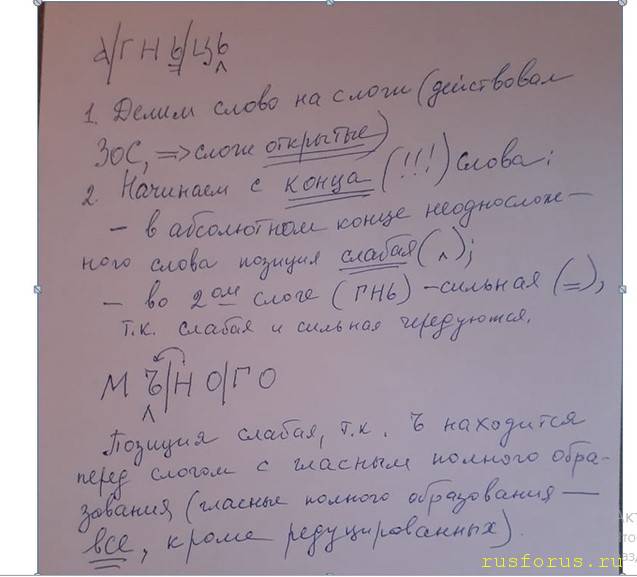 а/ГНЬ/ЦЬ
1. Делим слово на слоги (действовал
ЗОС, => слоги открытые)
2. Начинаем с конца (!!!) слова:
– в абсолютном конце неоднослож–
ного слова позиция слабая (^);
– во 2ом слоге (ГНЬ) – сильная (=),
т.к. слабая и сильная чередуются.
МЪ/НО/ГО
Позиция слабая, т.к. Ъ находится
перед слогом с гласным полного обра-
зования (гласные полного образования —
все, кроме редуцированных).
rusforus.ru